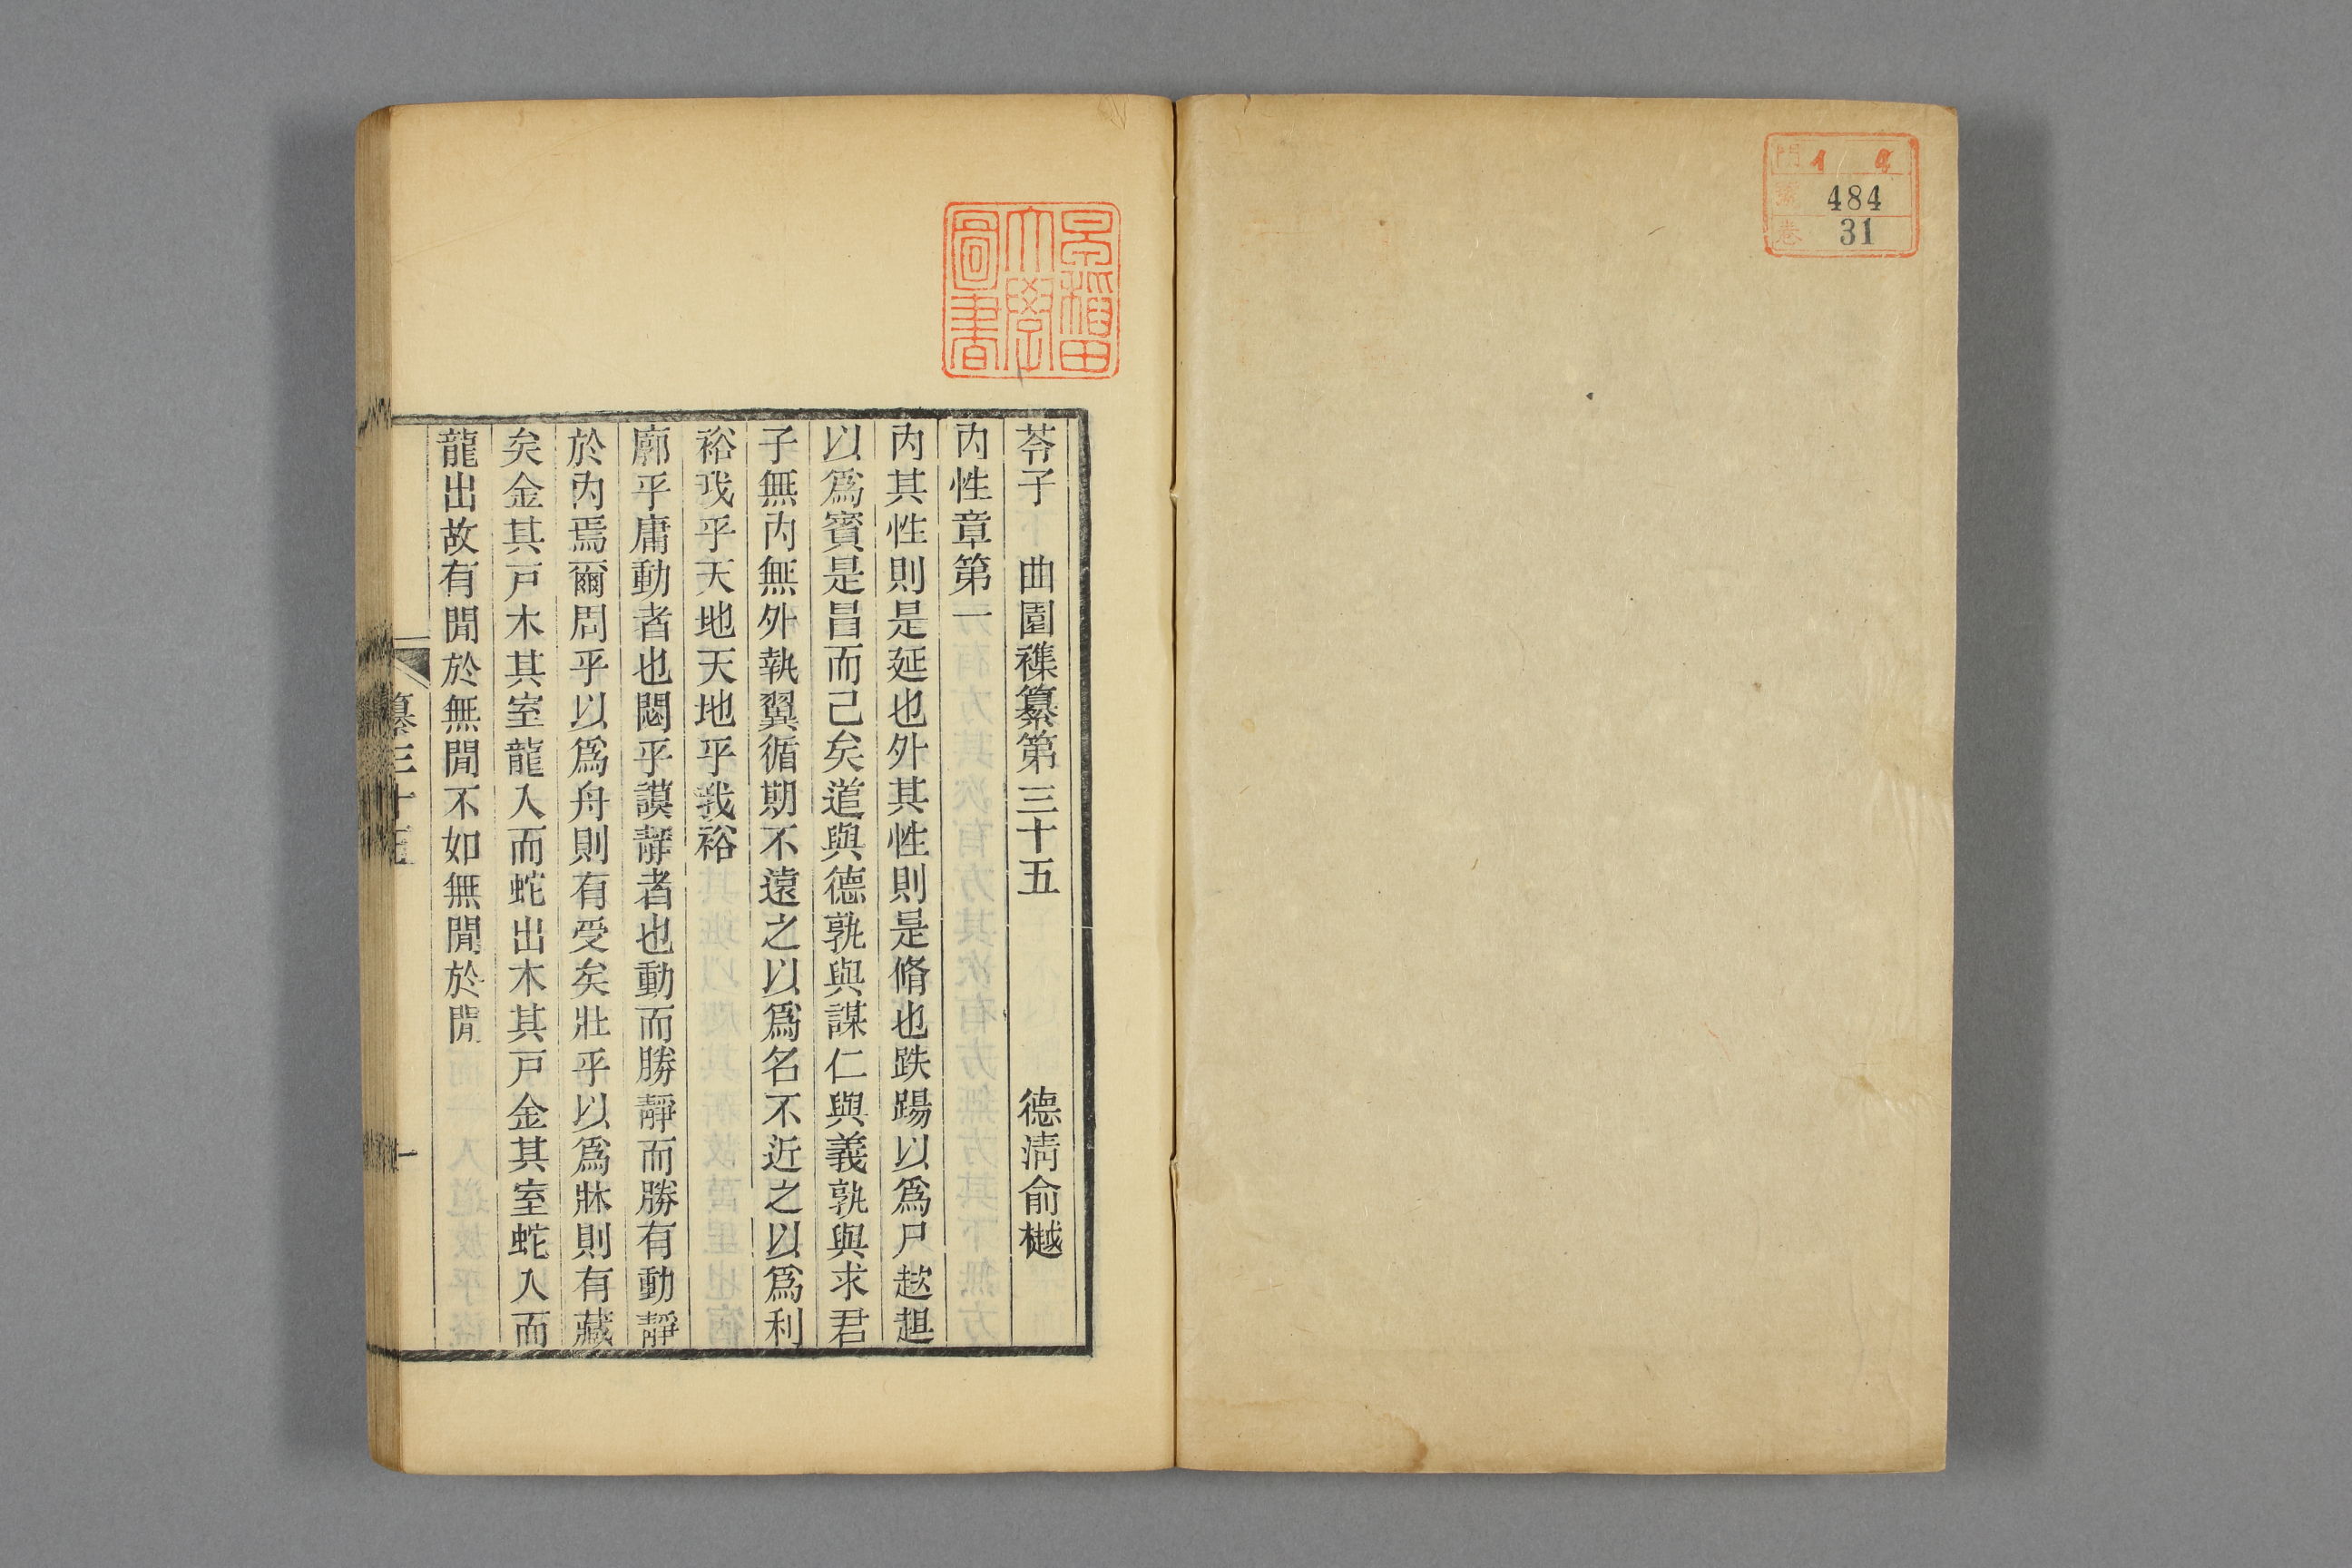 門 1 4
號 484
卷 31
早稻田大學圖書
苓子 曲園襍纂第三十五 德淸俞樾
內性章第一
內其性則是延也外其性則是脩也跌踢以爲尸趑趄
以爲賓是昌而己矣道與德孰與謀仁與義孰與求君
子無內無外執翼循期不遠之以爲名不近之以爲利
裕我乎天地天地乎我裕
廓乎庸動者也閟乎謨靜者也動而勝靜而勝有動靜
於內焉爾周乎以爲舟則有受矣壯乎以爲牀則有藏
矣金其戸木其室龍入而蛇出木其戸金其室蛇入而
龍出故有閒於無閒不如無閒於閒
纂三十五 一